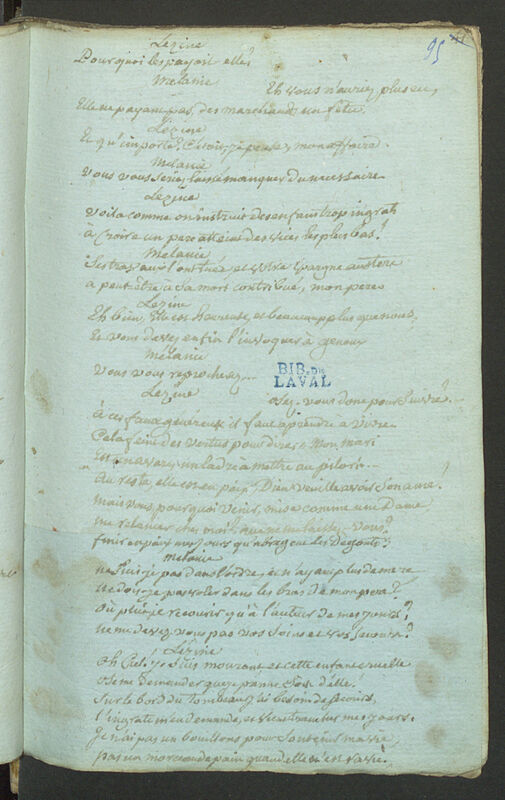 95
Lezine
Pourquoi les payoit elle?
Melanie
Eh vous n'auriez plus eu,
Elle ne payant pas, des marchands un fétu.
Lezine
Et qu'importe?
mon affaire.
Melanie
Vous vous seriez laissé manquer du necessaire
Lezine
Voila comme on instruit des enfans trop ingrats
à croire un pere atteint des vices les plus bas?
Melanie
Ses travaux l'ont tuée, et votre épargne austere
a peut être à sa mort contribué, mon pere
Lezine
Eh bien, elle est heureuse, et beaucoup plus que nous,
Et vous devez enfin l'invoquer à genoux
Melanie
Vous vous reprochez...
BIB. DE
LAVAL
Lezine
osez-vous donc poursuivre?
à ces faux genereux il faut aprendre a vivre
Cela feint des vertus pour dire: Mon mari
Est un avare, un ladre à mettre au pilori...
Au reste, elle est en paix, Dieu veuille avoir son ame!
Mais vous, pourquoi venir, mise comme une Dame,
me relancer chez moi? que ne me laissez-vous?
finir en paix mes jours qu'abregent les degouts?
Melanie
ne suis-je pas dans l'ordre, et n'ayant plus de mere
ne dois-je pas voler dans les bras de mon pere?
Où puis-je recourir qu'à l'auteur de mes jours?
ne me devez vous pas vos soins et vos secours?
Lezine
Oh Ciel! je suis mourant et cette enfant cruelle
ose me demander que je prenne soin d'elle.
Sur le bord du tombeau j'ai besoin de secours,
l'ingrate m'en demande, et vient troubler mes jours.
Je n'ai pas un bouillon pour soutenir ma vie
pas un morceau de pain quand elle m'en